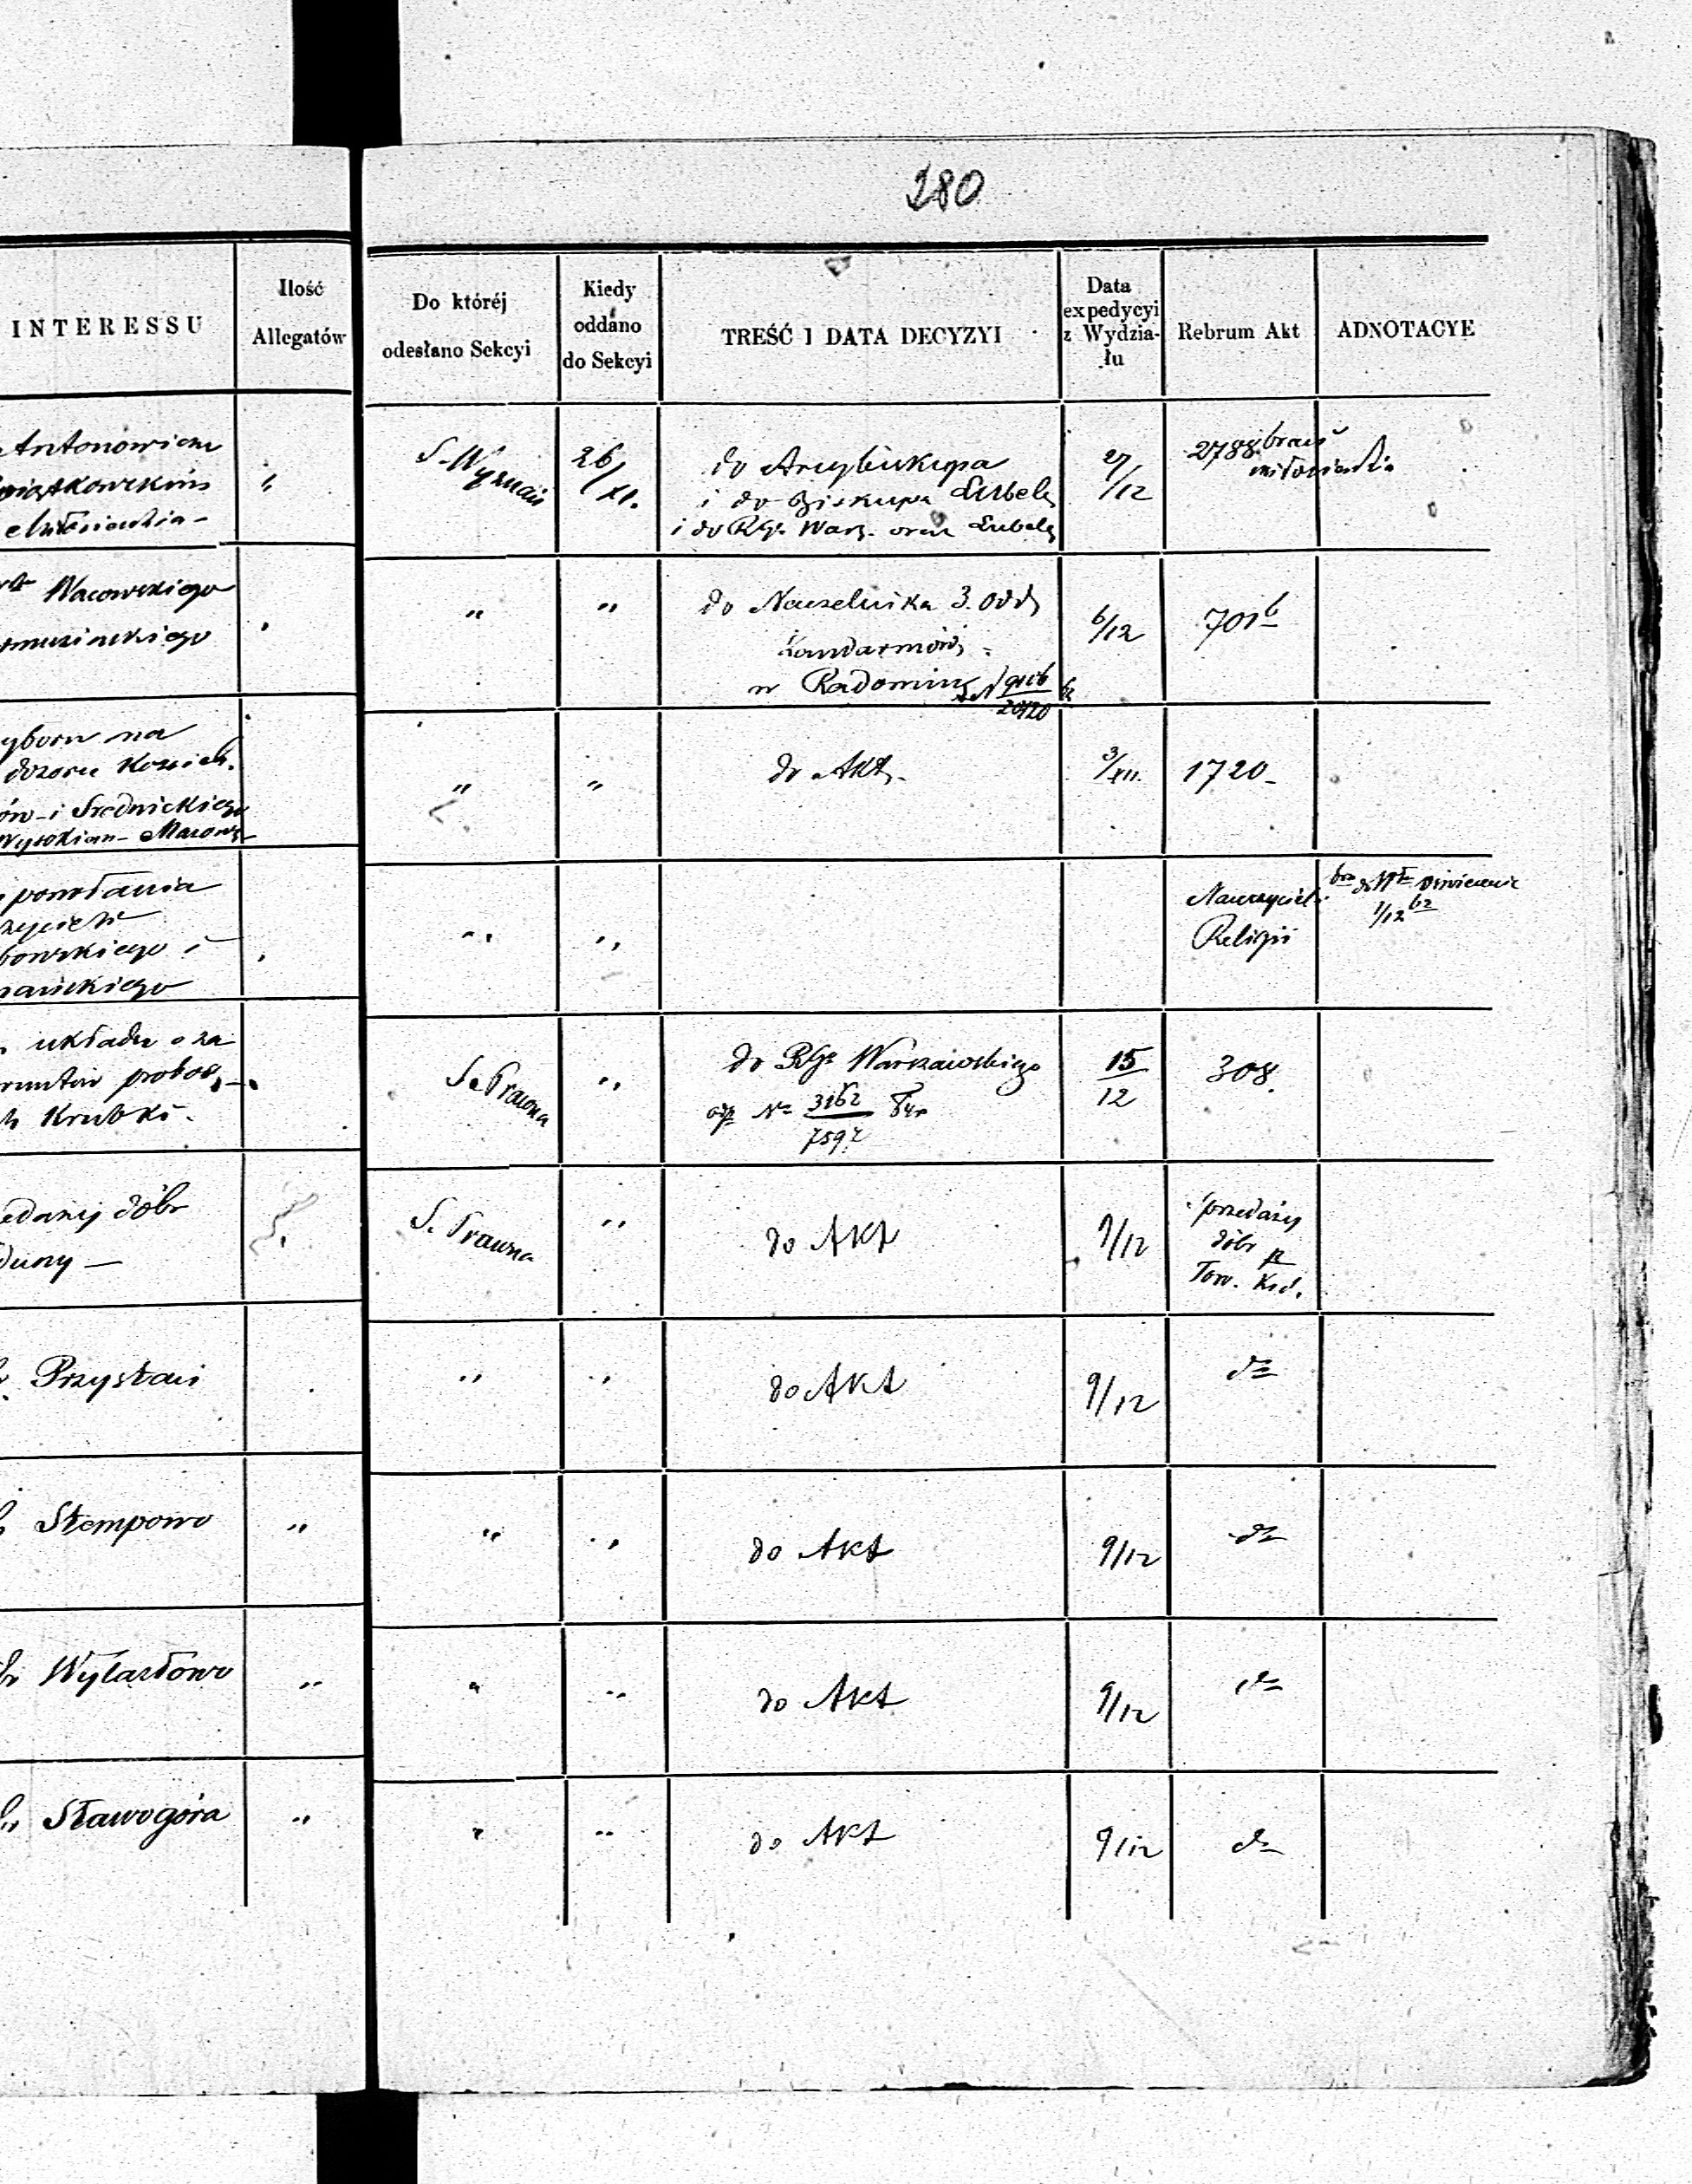 280
INTERESSU
Ilość
Allegatów
Do któréj
odesłano Sekcyi
Kiedy
oddano
do Sekcyi
TREŚĆ I DATA DECYZYI
Data
expedycyi
z Wydzia-
łu
Rebrum Akt
ADNOTACYE
Antonowicza
"
S-Wyznań
26/XI.
do Arcybiskupa
i do Biskupa Lubels
i do RGr Wars. oraz Lubels
27/12
2788
Wacowskiego
"
"
do Naczelnika 3. Odd
Żandarmów
w Radomiu
6/12
701b
yboru na
dozoru Kościel.
ów i Srednickiego
Wysokiem Mazow
"
"
do Akt.
3/XII.
1720
powołania
bowskiego i
"
"
Nauczycieli
Religii
1/12
układu o za
gruntów probos
Krubki.
S. Prawna
"
do RGr Warszawskiego
No 3162
7592
15
12
308.
edaży dóbr
duny —
S. Prawna
"
do Akt
9/12
przedaży
dóbr
Tow. Krd.
Przystań
"
"
do Akt
9/12
do
Stempowo
"
"
"
do Akt
9/12
do
Wylazłowo
"
"
"
do Akt
9/12
do
Sławogóra
"
"
"
do Akt
9/12
do